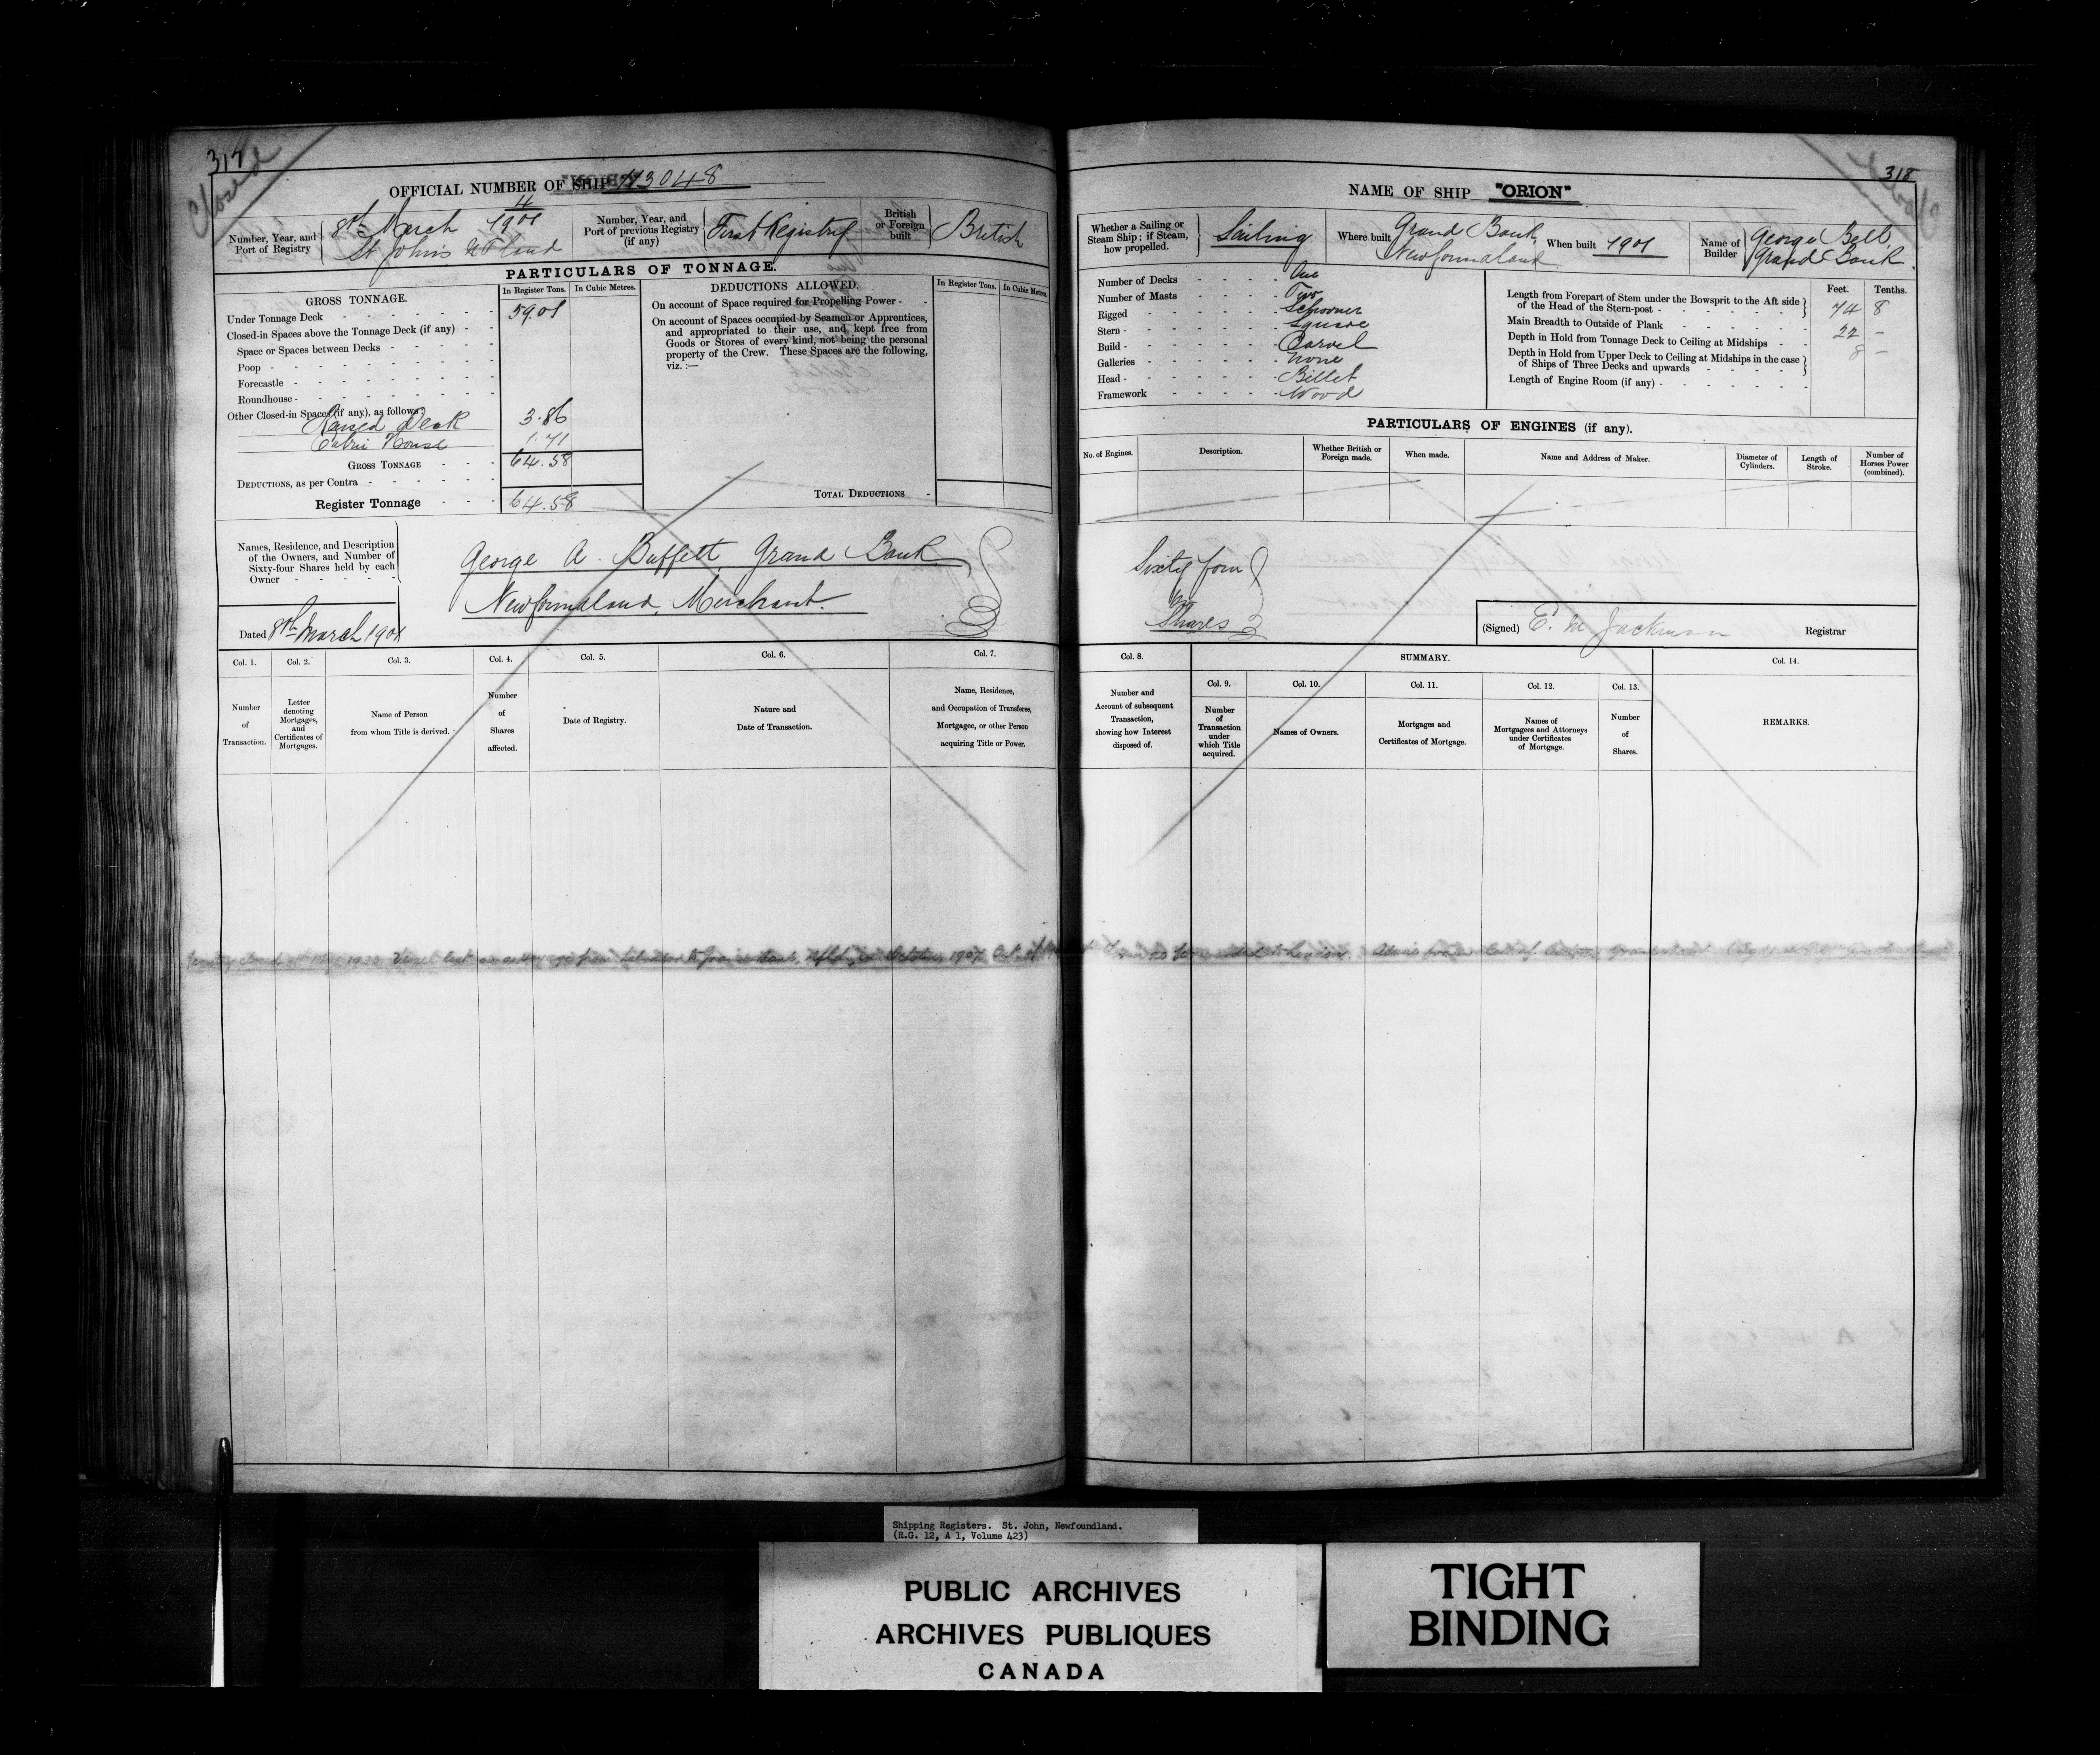 317
Closed
OFFICIAL NUMBER OF SHIP 113048
Number, Year, and Port of Registry
8th March 4/1901
St John's N F land
Number, Year, and Port of previous Registry (if any)
First Registry
British or Foreign built
British
PARTICULARS OF TONNAGE.
GROSS TONNAGE.
In Register Tons.
In Cubic Metres.
Under Tonnage Deck 59.01
Closed-in Spaces above the Tonnage Deck (if any)
Space or Spaces between Decks
Poop
Forecastle
Roundhouse
Other Closed-in Spaces (if any), as follows:
Raised Deck 3.86
Cabin House 1.71
GROSS TONNAGE 64.58
DEDUCTIONS, as per Contra
Register Tonnage 64.58
DEDUCTIONS ALLOWED.
In Register Tons.
In Cubic Metres.
On account of Space required for Propelling Power
On account of Spaces occupied by Seamen or Apprentices,
and appropriated to their use, and kept free from
Goods or Stores of every kind, not being the personal
property of the Crew. These Spaces are the following,
viz. :—
TOTAL DEDUCTIONS
Names, Residence, and Description
of the Owners, and Number of
Sixty-four Shares held by each
Owner
George A. Buffett, Grand Bank
Newfoundland, Merchant.
Dated 8th March 1901
Col. 1.
Number of Transaction.
Col. 2.
Letter denoting Mortgages, and Certificates of Mortgages.
Col. 3.
Name of Person from whom Title is derived.
Col. 4.
Number of Shares affected.
Col. 5.
Date of Registry.
Col. 6.
Nature and Date of Transaction.
Col. 7.
Name, Residence, and Occupation of Transferee, Mortgagee, or other Person acquiring Title or Power.
Vessel lost on a voyage from Labrador to Grand Bank, Nfld, in October, 1907
318
NAME OF SHIP "ORION"
Whether a Sailing or Steam Ship; if Steam, how propelled.
Sailing
Where built
Grand Bank
Newfoundland
When built 1901
Name of Builder
George Bell,
Grand Bank.
Number of Decks One
Number of Masts Two
Rigged Schooner
Stern Square
Build Carvel
Galleries None
Head Billet
Framework Wood
Feet. Tenths.
Length from Forepart of Stem under the Bowsprit to the Aft side
of the Head of the Stern-post 74 8
Main Breadth to Outside of Plank 22 –
Depth in Hold from Tonnage Deck to Ceiling at Midships 8 –
Depth in Hold from Upper Deck to Ceiling at Midships in the case
of Ships of Three Decks and upwards
Length of Engine Room (if any)
PARTICULARS OF ENGINES (if any).
No. of Engines.
Description.
Whether British or Foreign made.
When made.
Name and Address of Maker.
Diameter of Cylinders.
Length of Stroke.
Number of Horses Power (combined).
Sixty four
Shares
(Signed) E. M Jackman Registrar
Col. 8.
Number and Account of subsequent Transaction, showing how Interest disposed of.
SUMMARY.
Col. 9.
Number of Transaction under which Title acquired.
Col. 10.
Names of Owners.
Col. 11.
Mortgages and Certificates of Mortgage.
Col. 12.
Names of Mortgagees and Attorneys under Certificates of Mortgage.
Col. 13.
Number of Shares.
Col. 14.
REMARKS.
Shipping Registers. St. John, Newfoundland.
(R.G. 12, A 1, Volume 423)
PUBLIC ARCHIVES
ARCHIVES PUBLIQUES
CANADA
TIGHT
BINDING